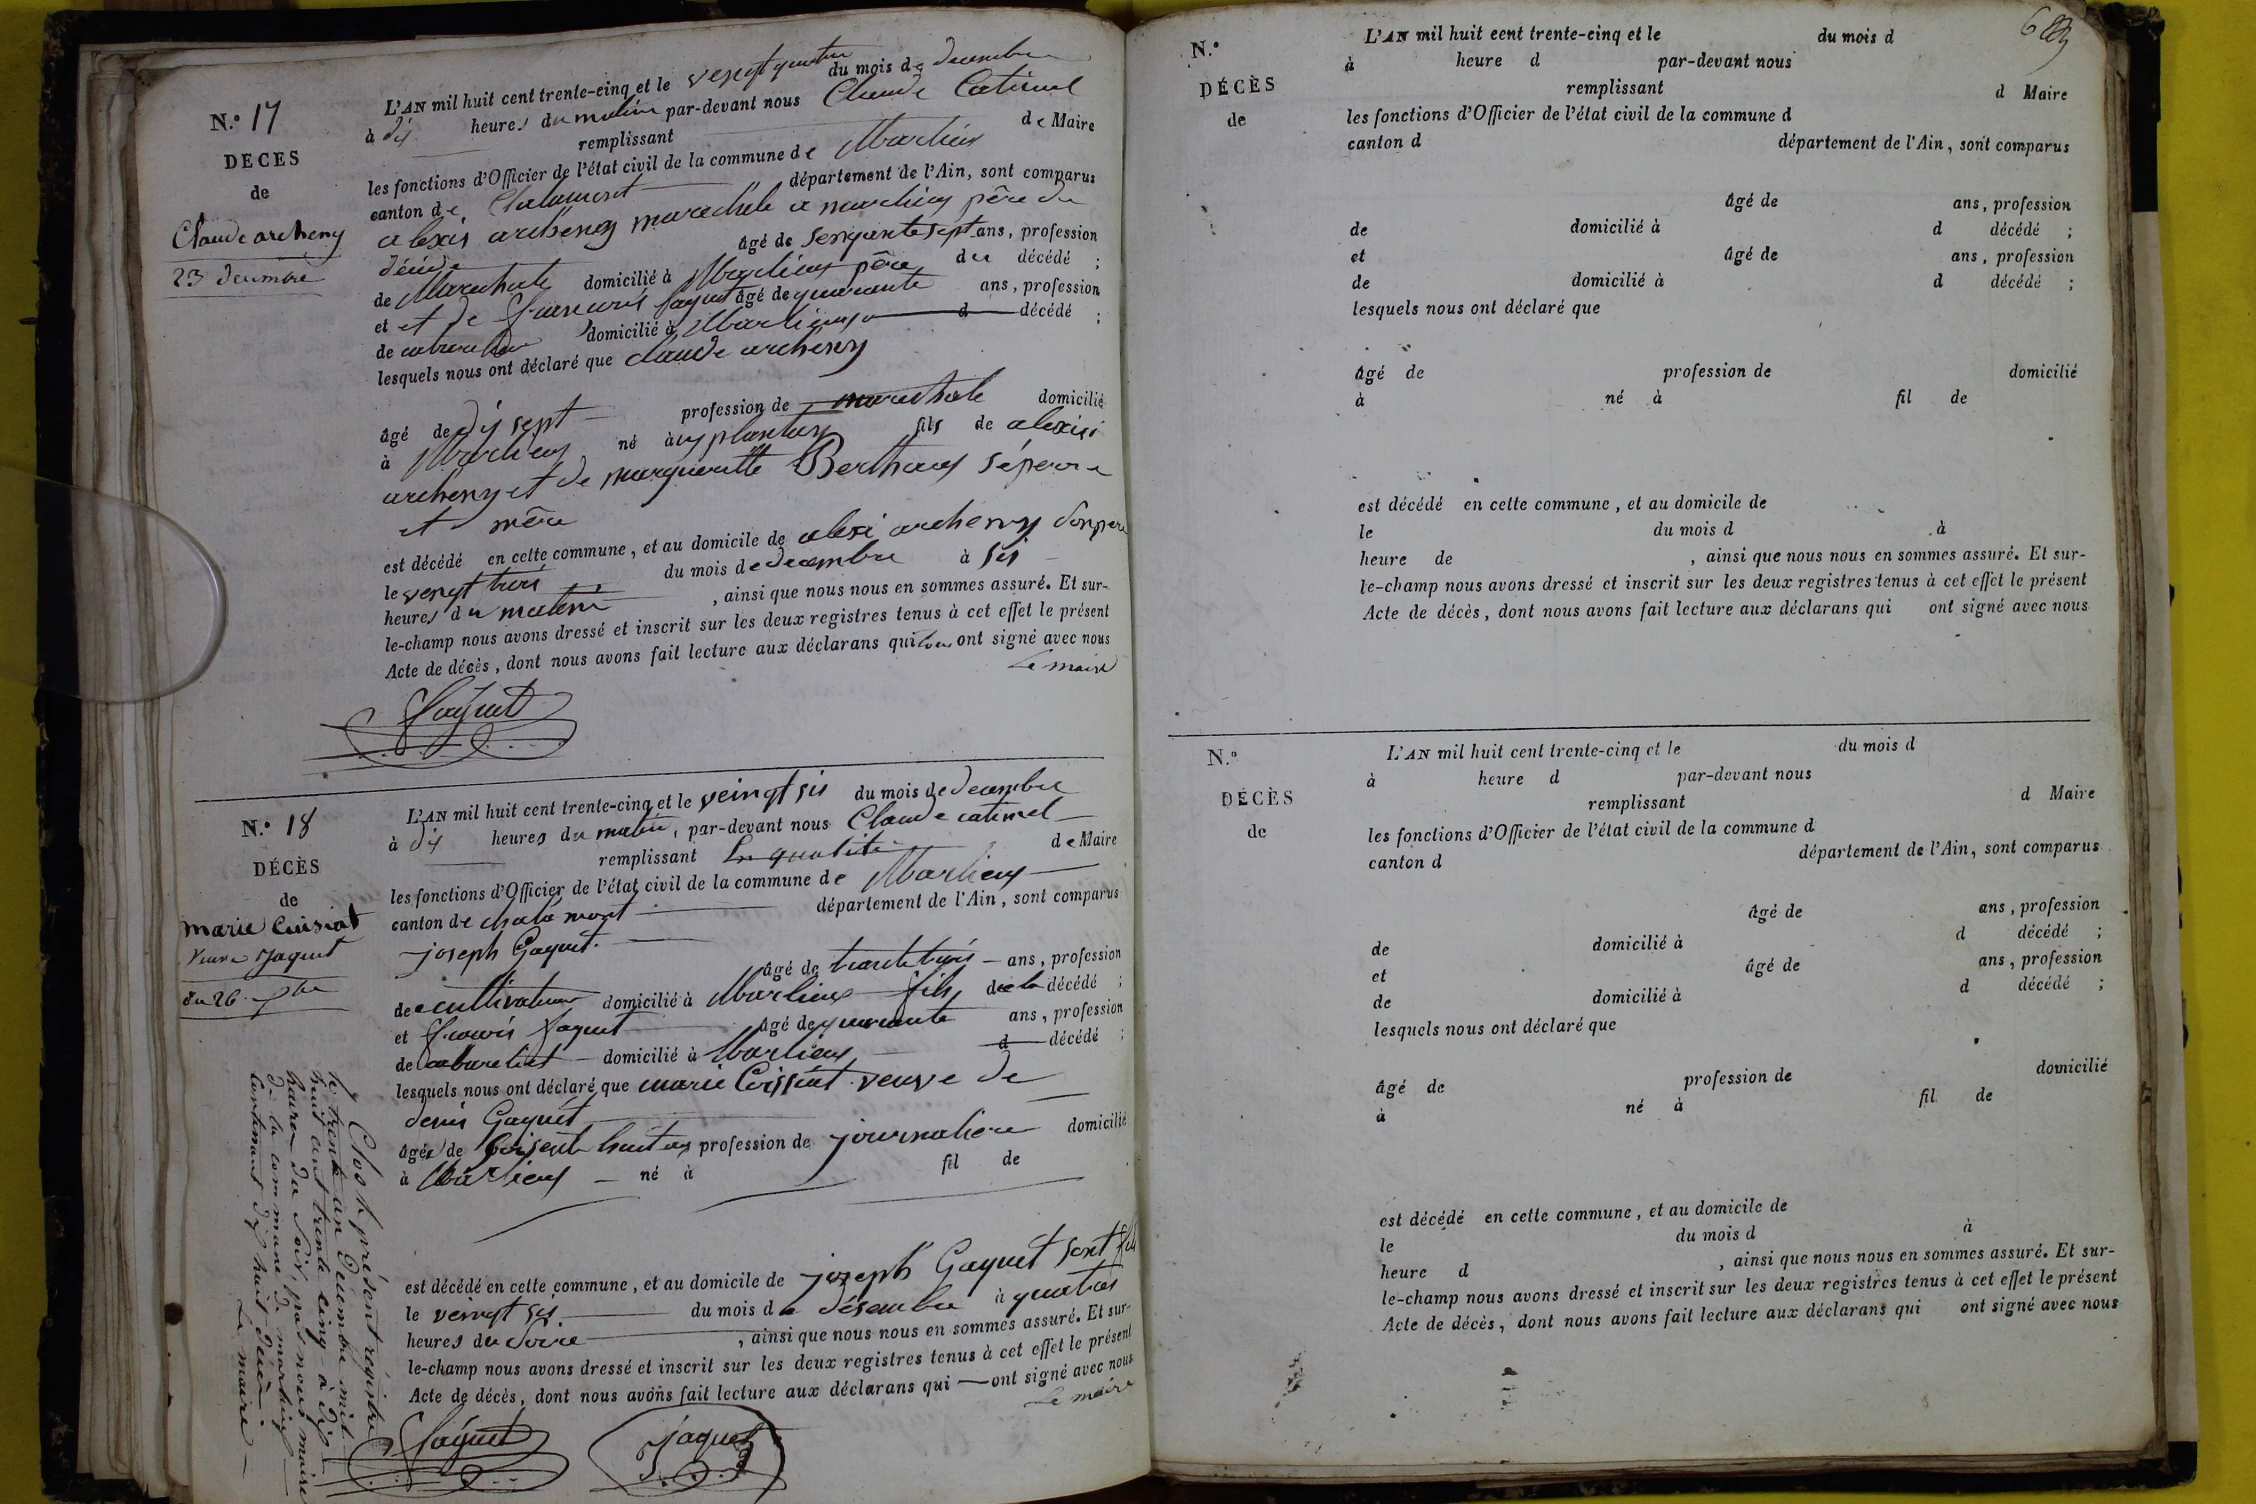 N.º 17
DÉCÈS
de
Claude archeny
23 decembre
L'AN mil huit cent trente-cinq et le vengt quatre du mois de decembre
à dis heures du matin par-devant nous Claude Catimel
remplissant de Maire
les fonctions d'Officier de l'état civil de la commune de Marlieu
canton de Chalamont département de l'Ain, sont comparus
alexis archeny marechale a marlieu père du
décédé âgé de senquante sept ans, profession
de Marechale domicilié à Marlieux père du décédé ;
et et de francois Jaquet âgé de quarante ans, profession
de cabaretier domicilié à Marlieux d décédé ;
lesquels nous ont déclaré que claude archeny
âgé de dis sept profession de marechale domicilié
à Marlieux né à plantay fils de alexis
archeny et de marguerite Berthaux sépere
et mère
est décédé en cette commune, et au domicile de alexi archeny sonpere
le vengt trois du mois de decembre à sis
heures du matin , ainsi que nous nous en sommes assuré. Et sur-
le-champ nous avons dressé et inscrit sur les deux registres tenus à cet effet le présent
Acte de décès, dont nous avons fait lecture aux déclarans qui ont signé avec nous
Le maire
Jaquet
N.º 18
DÉCÈS
de
marie Cuisiat
veuve Jaquet
du 26 xbre
L'AN mil huit cent trente-cinq et le veingt sis du mois de decembre
à dis heures du matin, par-devant nous Claude catimel
remplissant en qualité de Maire
les fonctions d'Officier de l'état civil de la commune de Marlieux
canton de chalamont département de l'Ain, sont comparus
joseph Gaquet
âgé de trante trois ans, profession
de cultivateur domicilié à Marlieux fils de la décédé ;
et francois Jaquet âgé de quarante ans, profession
de cabaretier domicilié à Marlieux d décédé ;
lesquels nous ont déclaré que marie Cuissiat veuve de
denis Gaquet
âgée de soisente huit ans profession de journaliere domicilié
à Marlieux né à fil de
est décédé en cette commune, et au domicile de joseph Gaquet sont fils
le veingt sis du mois de désembre à quatres
heures du soire , ainsi que nous nous en sommes assuré. Et sur-
le-champ nous avons dressé et inscrit sur les deux registres tenus à cet effet le présent
Acte de décès, dont nous avons fait lecture aux déclarans qui ont signé avec nous
Le maire
Jaquet
Jaquet
Clos le présent régistre
le trente un décembre mil
huit cent trente cinq à dis
heures du soir, par nous maire
de la commune de marlieux
contenant dis huit décès
Le maire
N.º
DÉCÈS
de
L'AN mil huit cent trente-cinq et le du mois d
à heure d par-devant nous
remplissant d Maire
les fonctions d'Officier de l'état civil de la commune d
canton d département de l'Ain, sont comparus
âgé de ans, profession
de domicilié à d décédé ;
et âgé de ans, profession
de domicilié à d décédé ;
lesquels nous ont déclaré que
âgé de profession de domicilié
à né à fil de
est décédé en cette commune, et au domicile de
le du mois d à
heure de , ainsi que nous nous en sommes assuré. Et sur-
le-champ nous avons dressé et inscrit sur les deux registres tenus à cet effet le présent
Acte de décès, dont nous avons fait lecture aux déclarans qui ont signé avec nous
N.º
DÉCÈS
de
L'AN mil huit cent trente-cinq et le du mois d
à heure d par-devant nous
remplissant d Maire
les fonctions d'Officier de l'état civil de la commune d
canton d département de l'Ain, sont comparus
âgé de ans, profession
de domicilié à d décédé ;
et âgé de ans, profession
de domicilié à d décédé ;
lesquels nous ont déclaré que
âgé de profession de domicilié
à né à fil de
est décédé en cette commune, et au domicile de
le du mois d à
heure d , ainsi que nous nous en sommes assuré. Et sur-
le-champ nous avons dressé et inscrit sur les deux registres tenus à cet effet le présent
Acte de décès, dont nous avons fait lecture aux déclarans qui ont signé avec nous